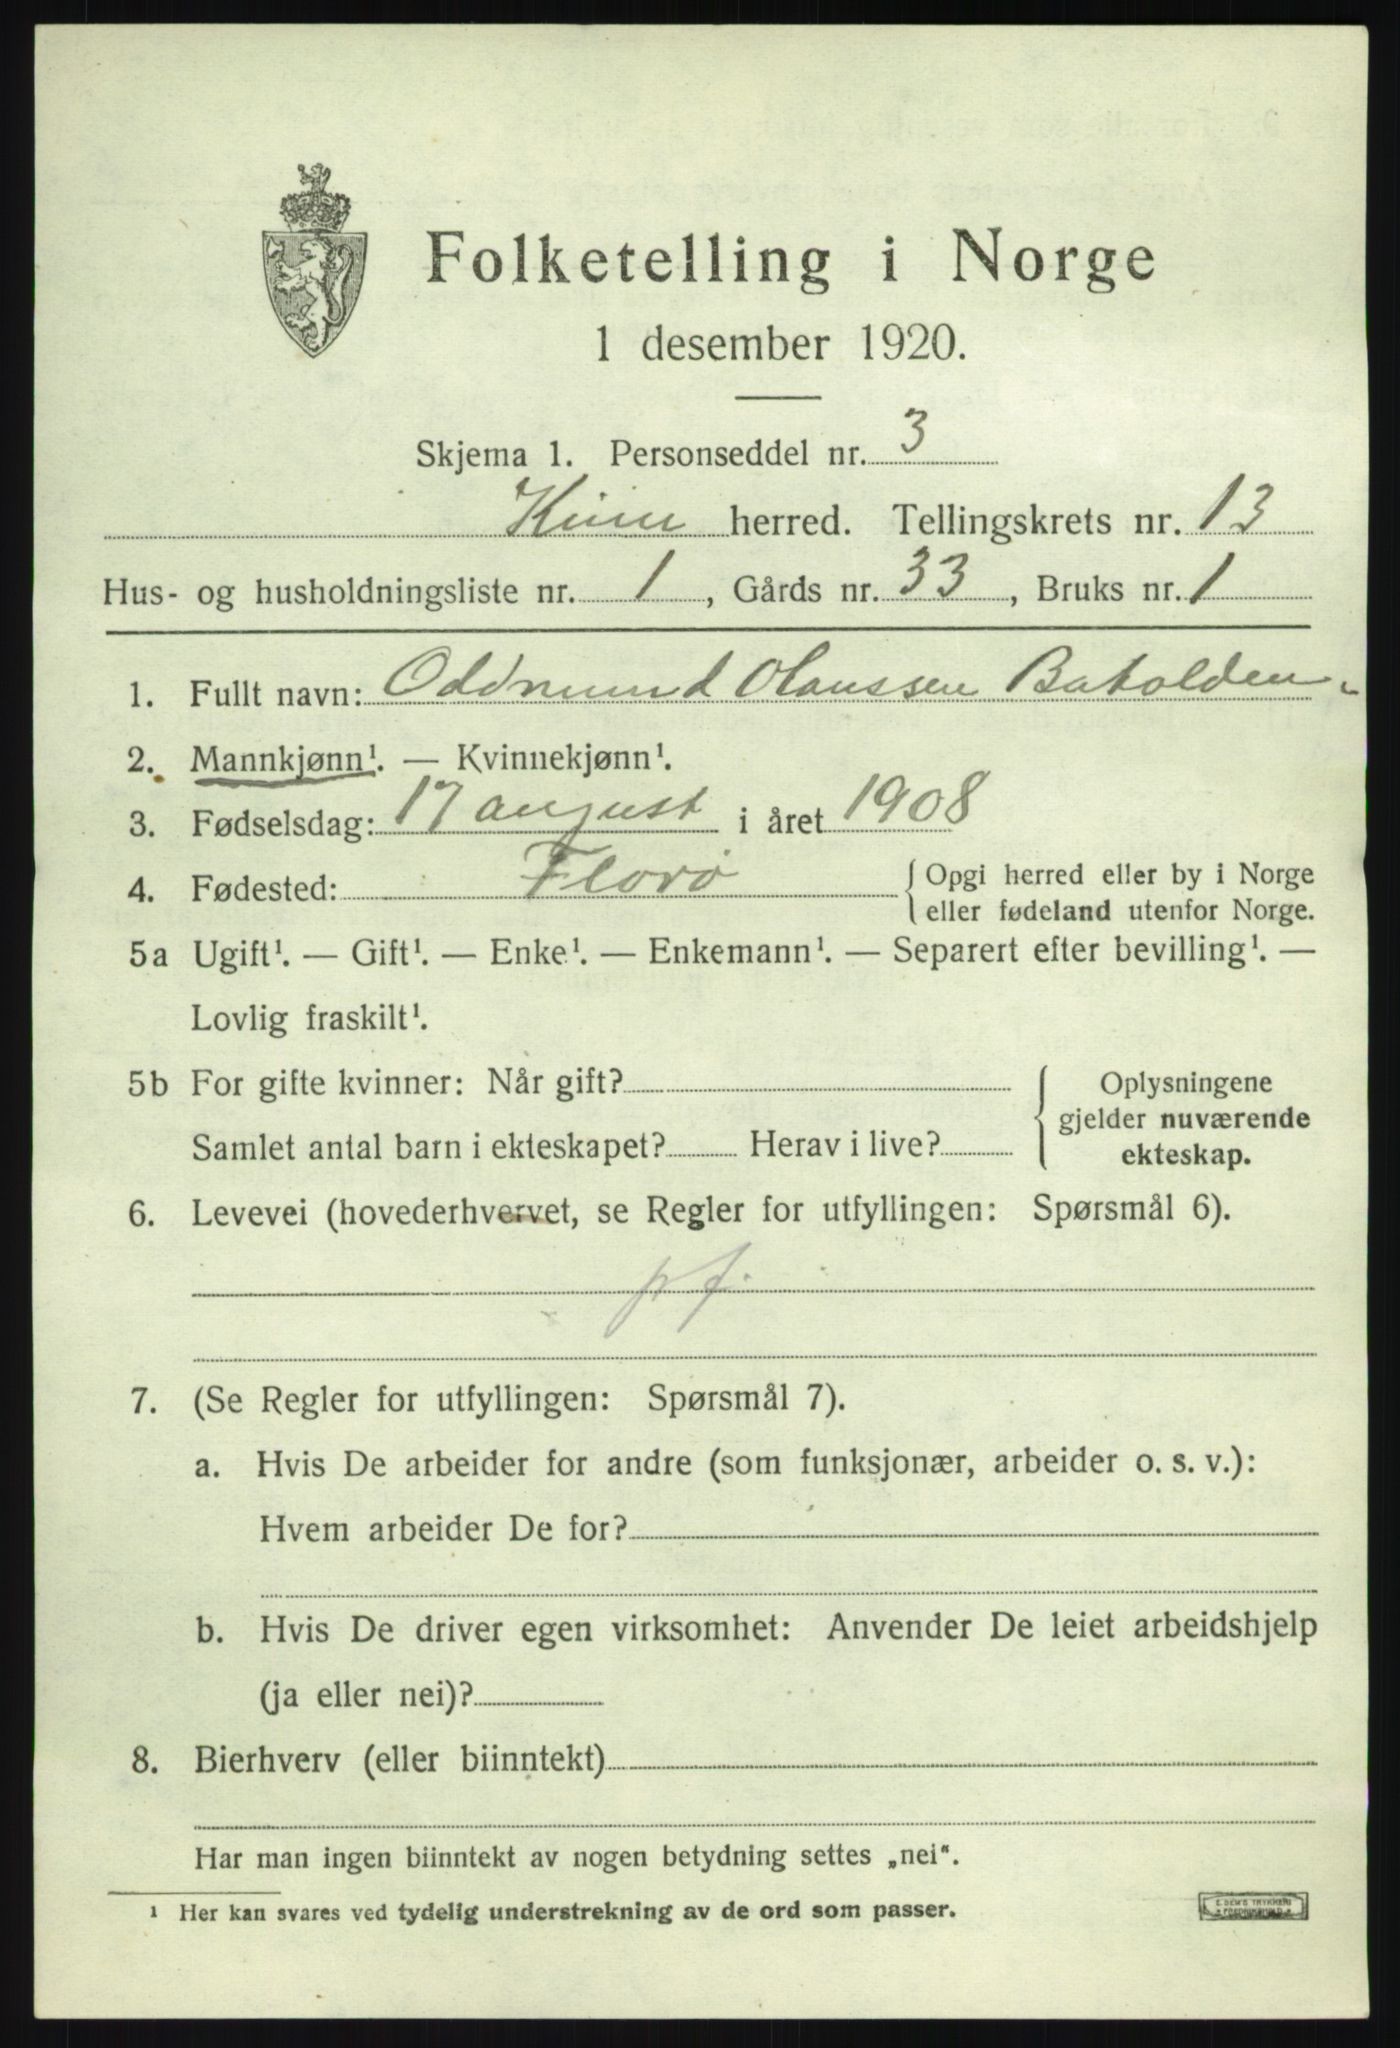 Folketelling i Norge
1 desember 1920.
Skjema 1. Personseddel nr. 3
Kinn herred. Tellingskrets nr. 13
Hus- og husholdningsliste nr. 1, Gårds nr. 33, Bruks nr. 1
1. Fullt navn: Oddmund Olaussen Batalden
2. Mannkjønn¹. — Kvinnekjønn¹.
3. Fødselsdag: 17 august i året 1908
4. Fødested: Florø { Opgi herred eller by i Norge
eller fødeland utenfor Norge.
5a Ugift¹. — Gift¹. — Enke¹. — Enkemann¹. — Separert efter bevilling¹. —
Lovlig fraskilt¹.
5b For gifte kvinner: Når gift? { Oplysningene
gjelder nuværende
Samlet antal barn i ekteskapet? Herav i live? ekteskap.
6. Levevei (hovederhvervet, se Regler for utfyllingen: Spørsmål 6).
pf.
7. (Se Regler for utfyllingen: Spørsmål 7).
a. Hvis De arbeider for andre (som funksjonær, arbeider o. s. v.):
Hvem arbeider De for?
b. Hvis De driver egen virksomhet: Anvender De leiet arbeidshjelp
(ja eller nei)?
8. Bierhverv (eller biinntekt)
Har man ingen biinntekt av nogen betydning settes „nei".
¹ Her kan svares ved tydelig understrekning av de ord som passer.